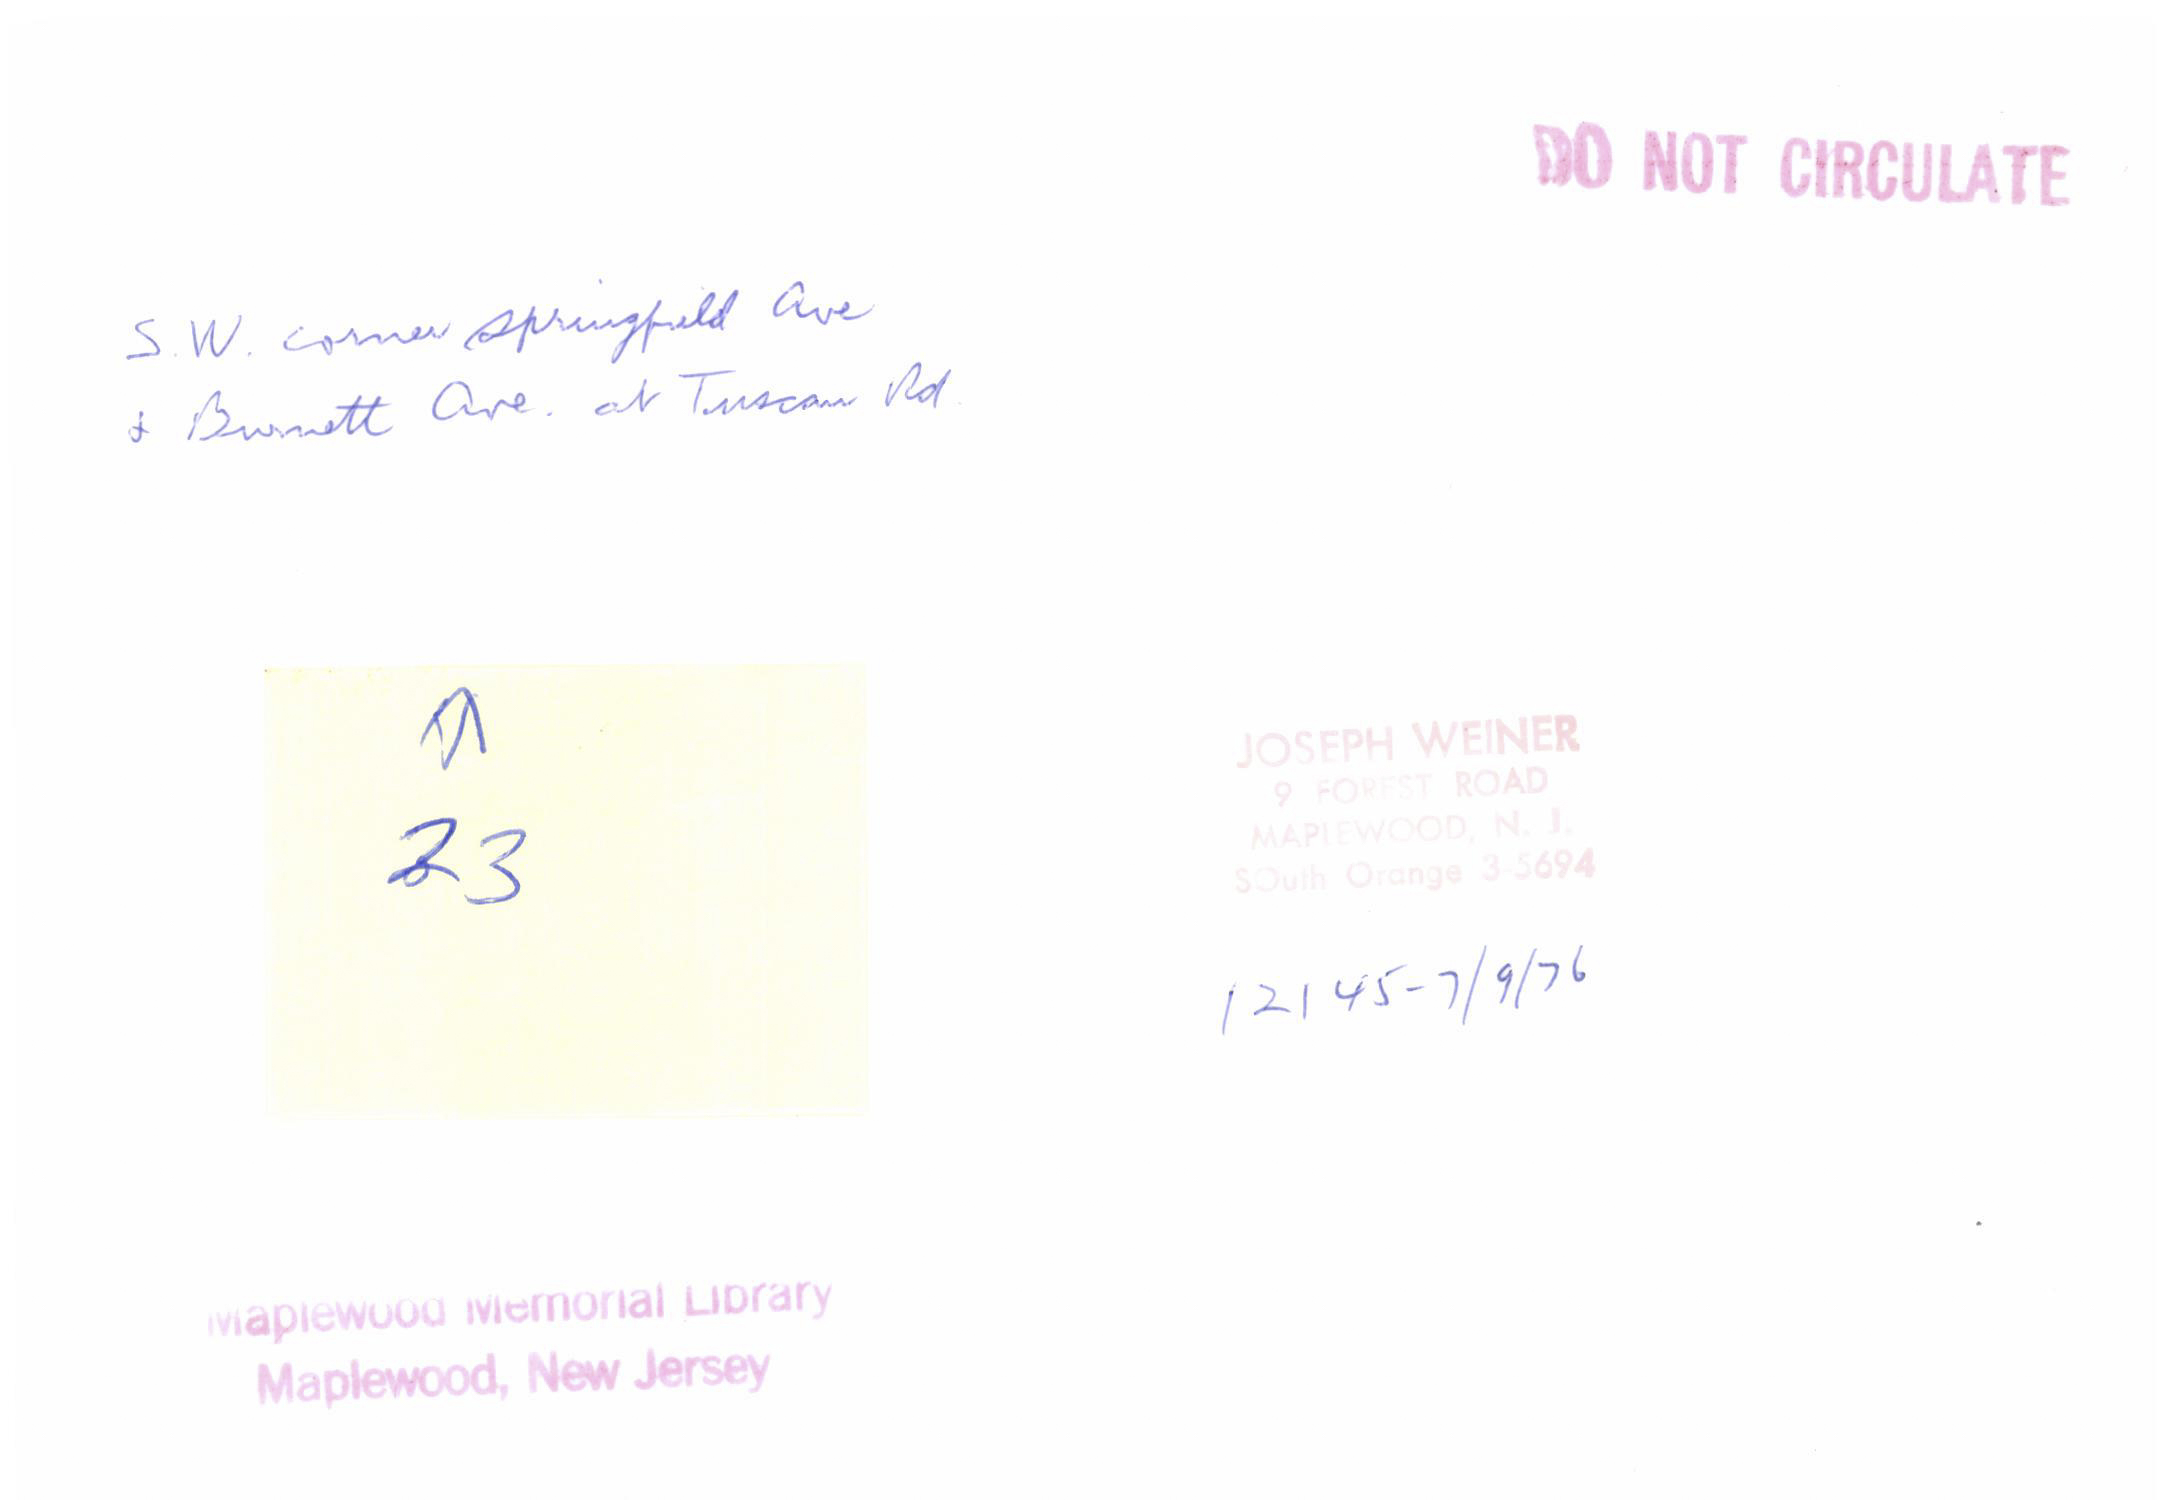 DO NOT CIRCULATE
S.W. corner Springfield Ave
& Burnett Ave. at Tuscan Rd.
23
JOSEPH WEINER
9 FOREST ROAD
MAPLEWOOD, N. J.
SOuth Orange 3-5694
12145-7/9/76
Maplewood Memorial Library
Maplewood, New Jersey